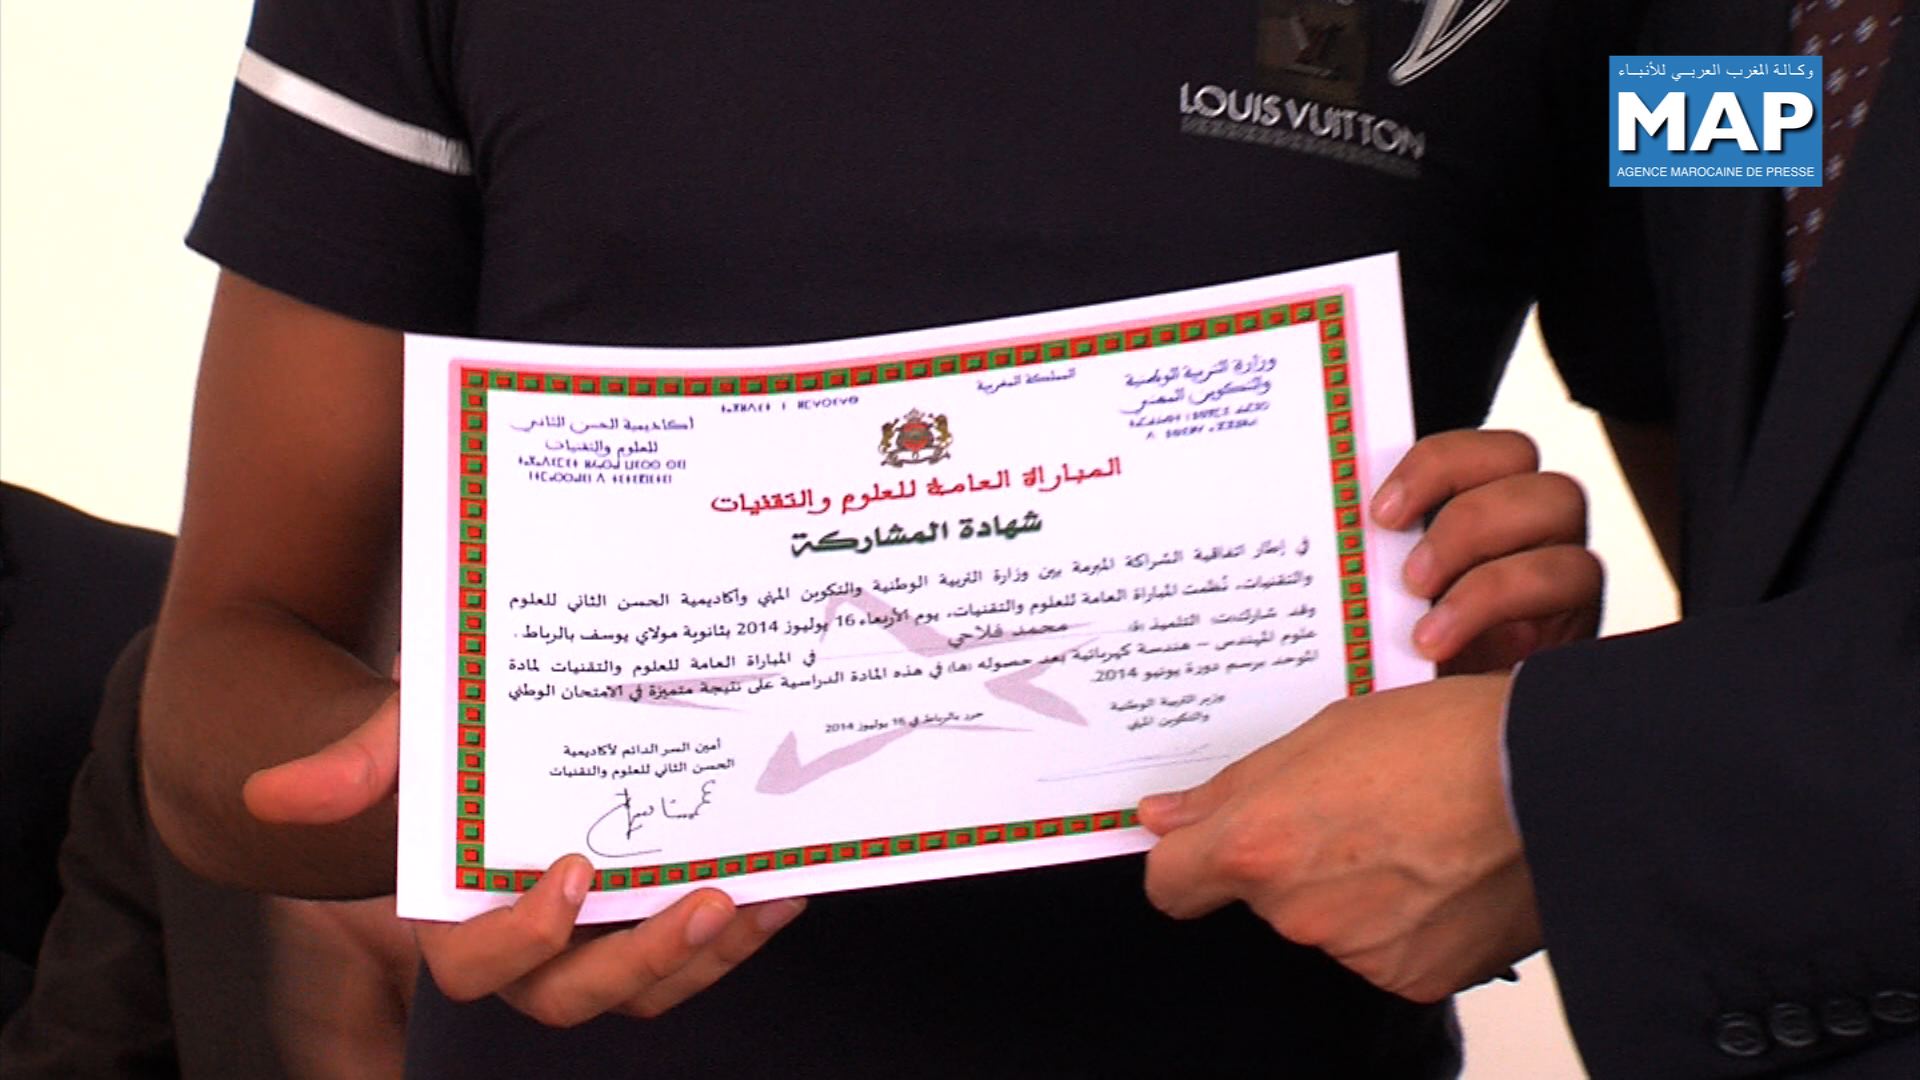 وكالة المغرب العربي للأنباء
MAP
AGENCE MAROCAINE DE PRESSE
LOUIS VUITTON
المملكة المغربية
وزارة التربية الوطنية
والتكوين المهني
أكاديمية الحسن الثاني
للعلوم والتقنيات
المباراة العامة للعلوم والتقنيات
شهادة المشاركة
في إطار اتفاقية الشراكة المبرمة بين وزارة التربية الوطنية والتكوين المهني وأكاديمية الحسن الثاني للعلوم
والتقنيات، نُظمت المباراة العامة للعلوم والتقنيات، يوم الأربعاء 16 يوليوز 2014 بثانوية مولاي يوسف بالرباط.
وقد شارك(ت) التلميذ (ة) محمد فلاحي في المباراة العامة للعلوم والتقنيات لمادة
علوم المهندس – هندسة كهربائية بعد حصوله (ها) في هذه المادة الدراسية على نتيجة متميزة في الامتحان الوطني
الموحد برسم دورة يونيو 2014.
حرر بالرباط في 16 يوليوز 2014
وزير التربية الوطنية
والتكوين المهني
أمين السر الدائم لأكاديمية
الحسن الثاني للعلوم والتقنيات